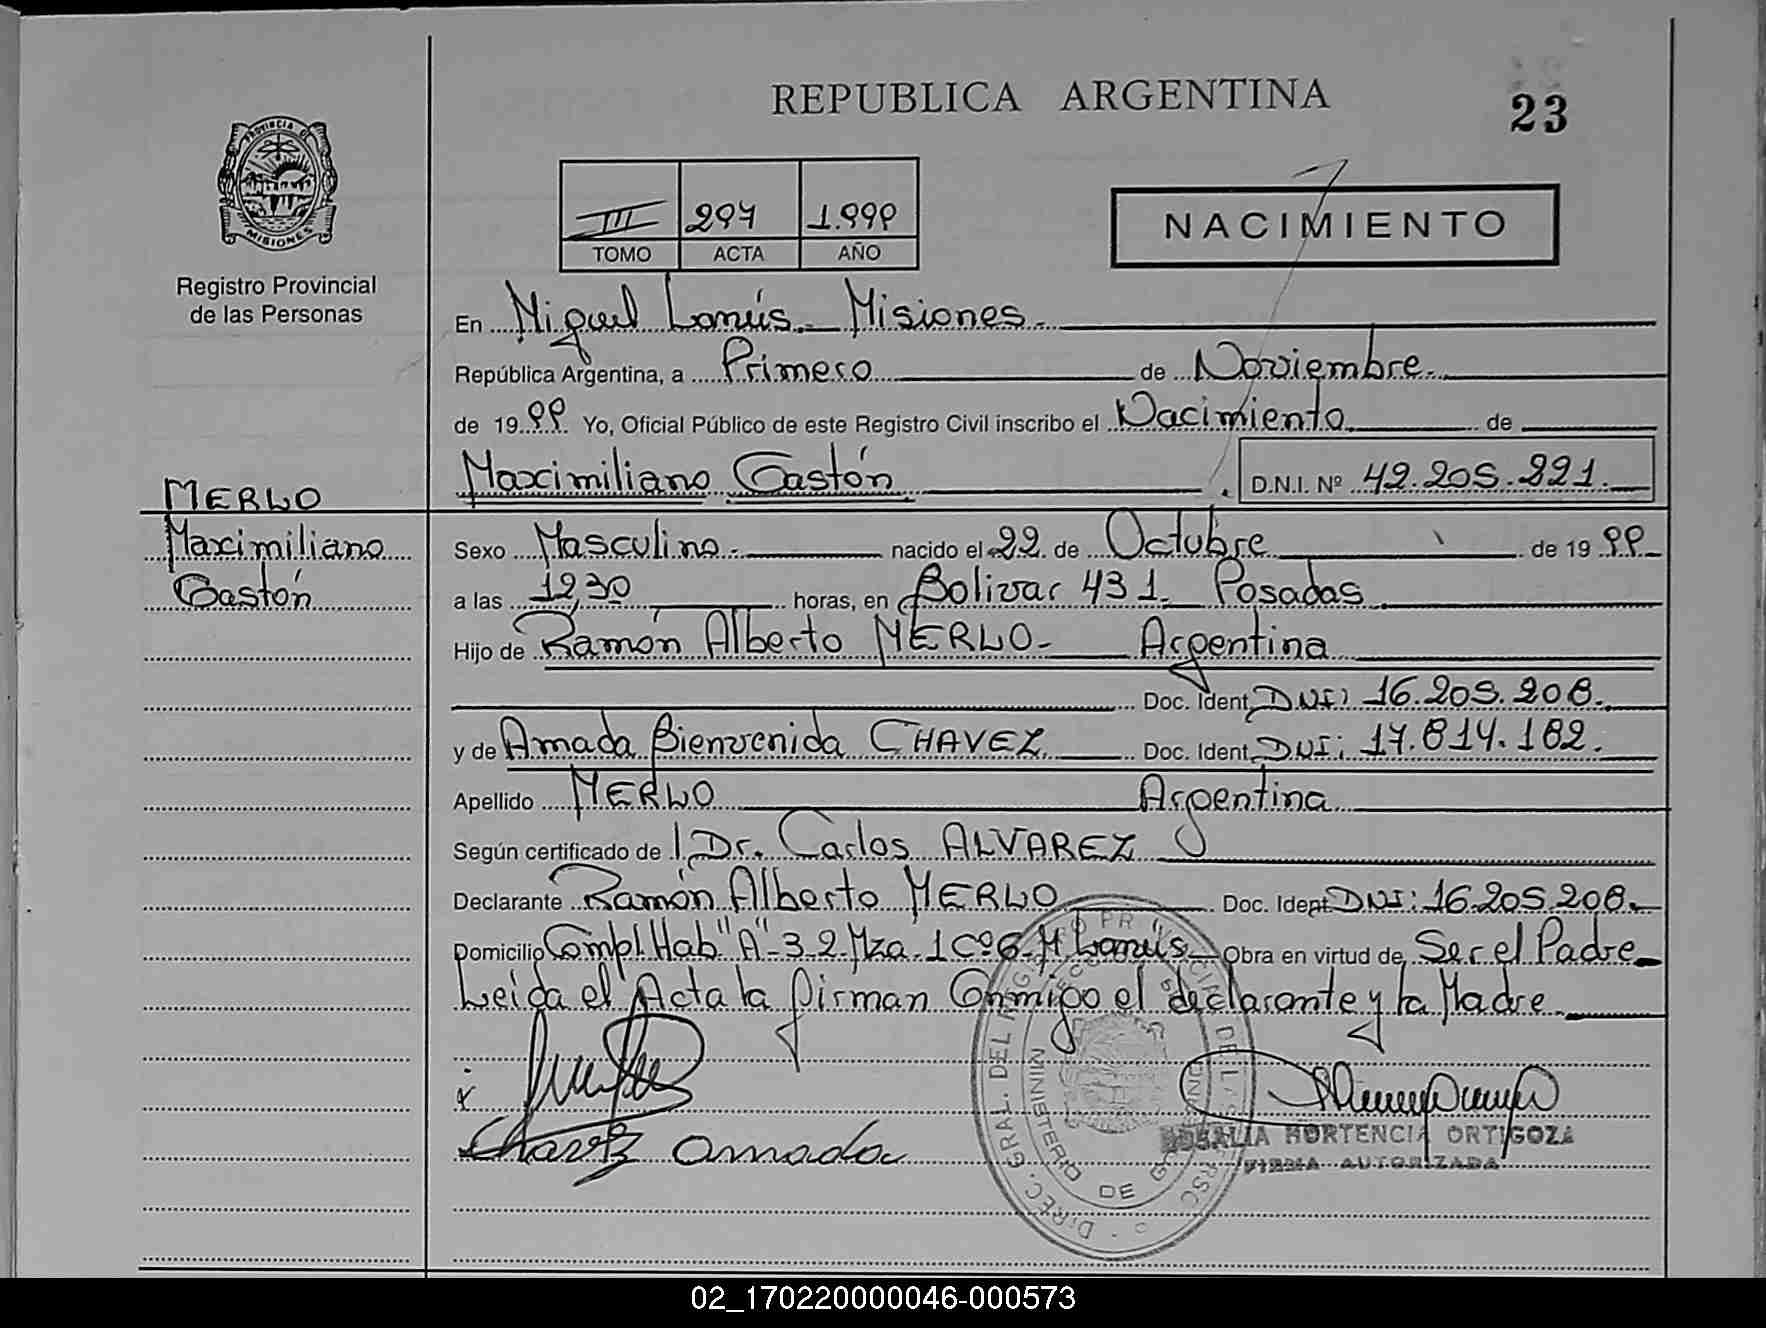 REPUBLICA ARGENTINA
23
PROVINCIA DE
MISIONES
Registro Provincial
de las Personas
III 297 1.999
TOMO ACTA AÑO
NACIMIENTO
En Miguel Lanús - Misiones.
República Argentina, a Primero de Noviembre.
de 1999. Yo, Oficial Público de este Registro Civil inscribo el Nacimiento de
Maximiliano Gastón D.N.I. Nº 42.205.221.
MERLO
Maximiliano
Gastón
Sexo Masculino.- nacido el 22 de Octubre de 1999
a las 12,30 horas, en Bolivar 431. Posadas
Hijo de Ramón Alberto MERLO- Argentina
Doc. Ident. DNI: 16.205.208.
y de Amada Bienvenida CHAVEZ Doc. Ident. DNI: 17.814.182.
Apellido MERLO Argentina
Según certificado de Dr. Carlos ALVAREZ
Declarante Ramón Alberto MERLO Doc. Ident. DNI: 16.205.208.
Domicilio Compl. Hab "A"-3.2-Mza.1 Cº6-M. Lanús- Obra en virtud de Ser el Padre
Leida el Acta la firman Conmigo el declarante y la Madre
Chavez Amada
ROSALIA HORTENCIA ORTIGOZA
FIRMA AUTORIZADA
DIREC. GRAL. DEL REGISTRO PROVINCIAL DE LAS PERS
MINISTERIO DE GOBIERNO
02_170220000046-000573